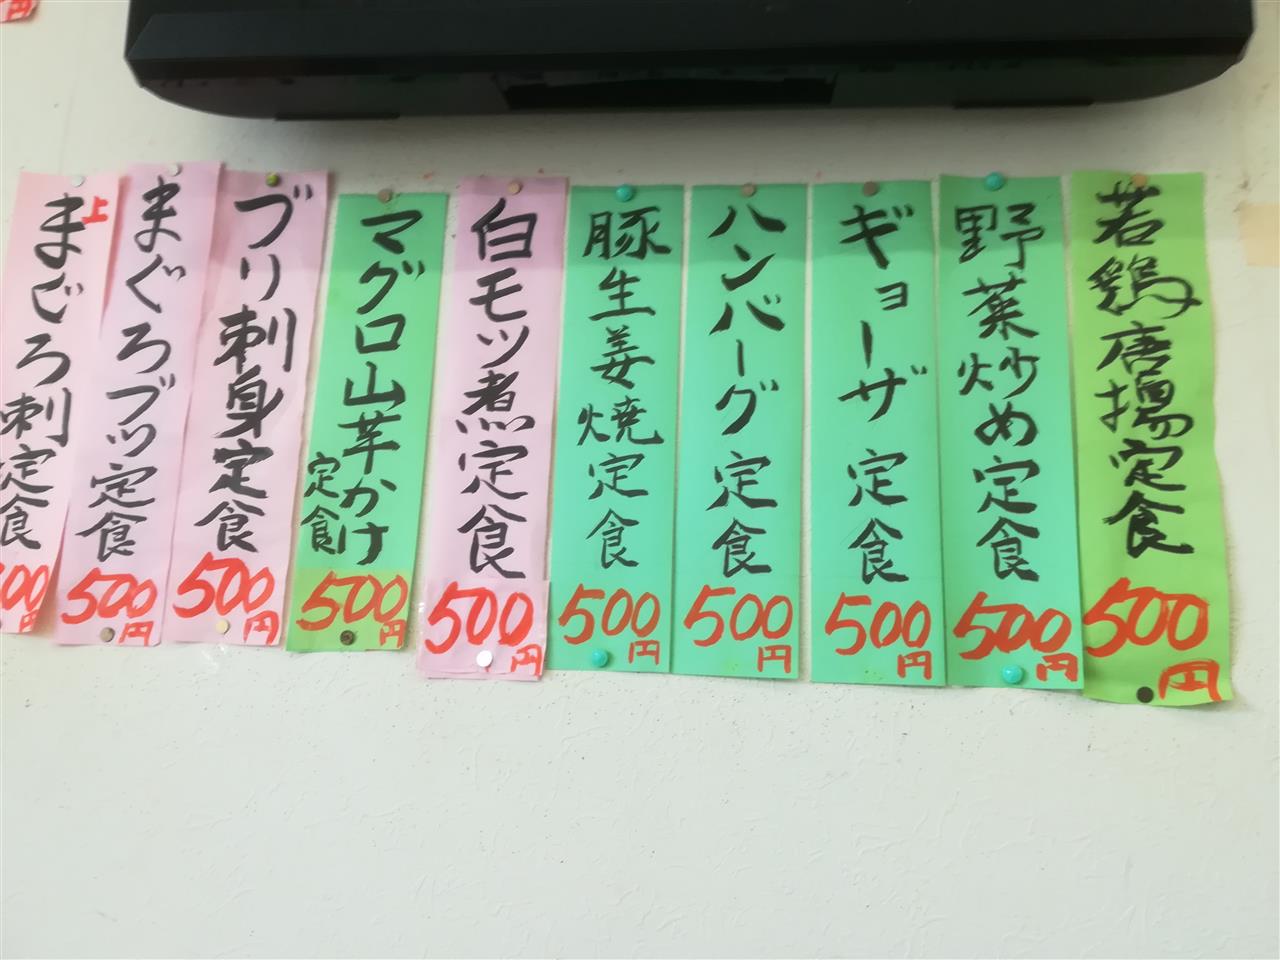 若鶏唐揚定食
500円
野菜炒め定食
500円
ギョーザ定食
500円
ハンバーグ定食
500円
豚生姜焼定食
500円
白モツ煮定食
500円
マグロ山芋かけ
定食
500円
ブリ刺身定食
500円
まぐろブツ定食
500円
上
まぐろ刺定食
00円
円